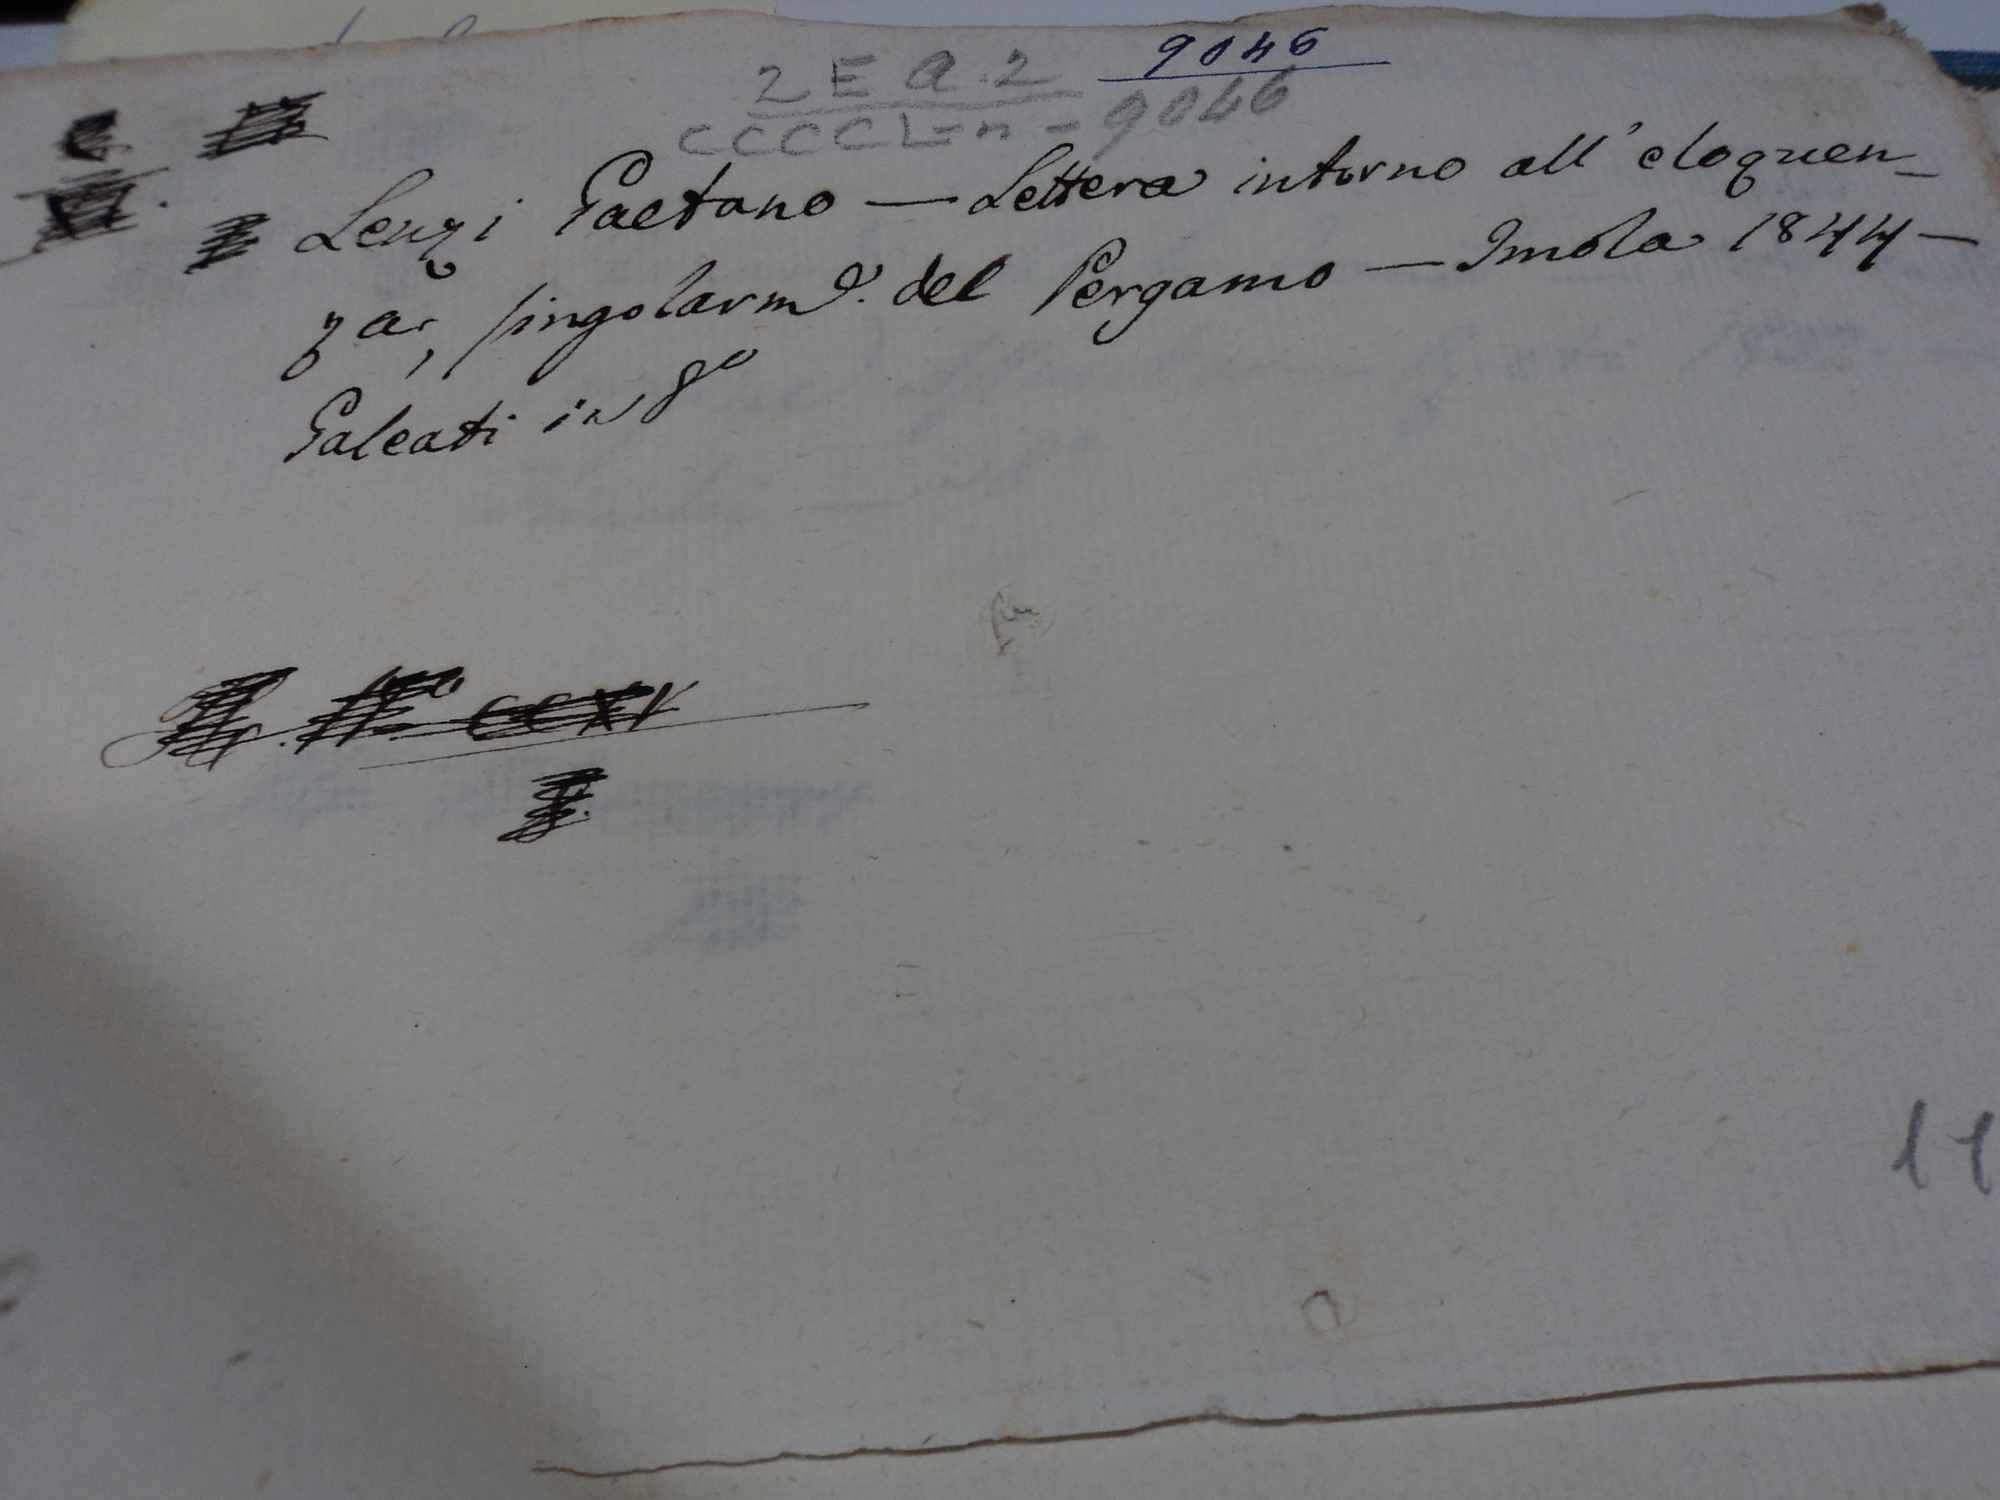 9046
2 E a. 2
CCCCL = n = 9046
Lenzi Gaetano — Lettera intorno all' eloquen-
za, singolarmᵉ. del Pergamo — Imola 1844 —
Galeati in 8º
CCXV
11